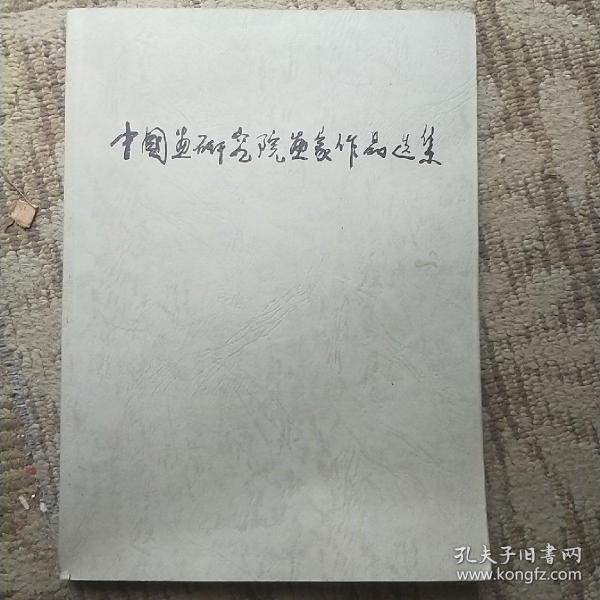 中國畫研究院畫家作品选集
孔夫子旧書网
www.kongfz.com